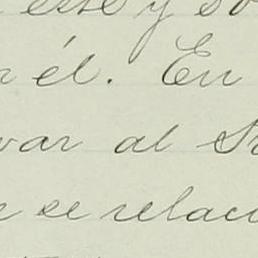 este y so
r él. En
var al Sr
r se relaci